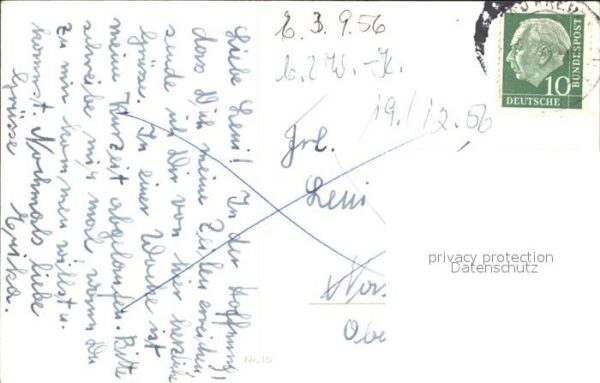 Liebe Leni! In der Hoffnung,
dass Dich meine Zeilen erreichen
sende ich Dir von hier herzliche
Grüsse. In einer Woche ist
meine Kurzeit abgelaufen. Bitte
schreibe mir mal wann Du
zu mir kommen willst u.
kommst. Nochmals liebe
Grüsse Erika.
E. 3. 9. 56
b. 2 W. -K.
19./12.56
Frl.
Leni
Obe
DEUTSCHE
BUNDESPOST
10
privacy protection
Datenschutz
Nr. 15